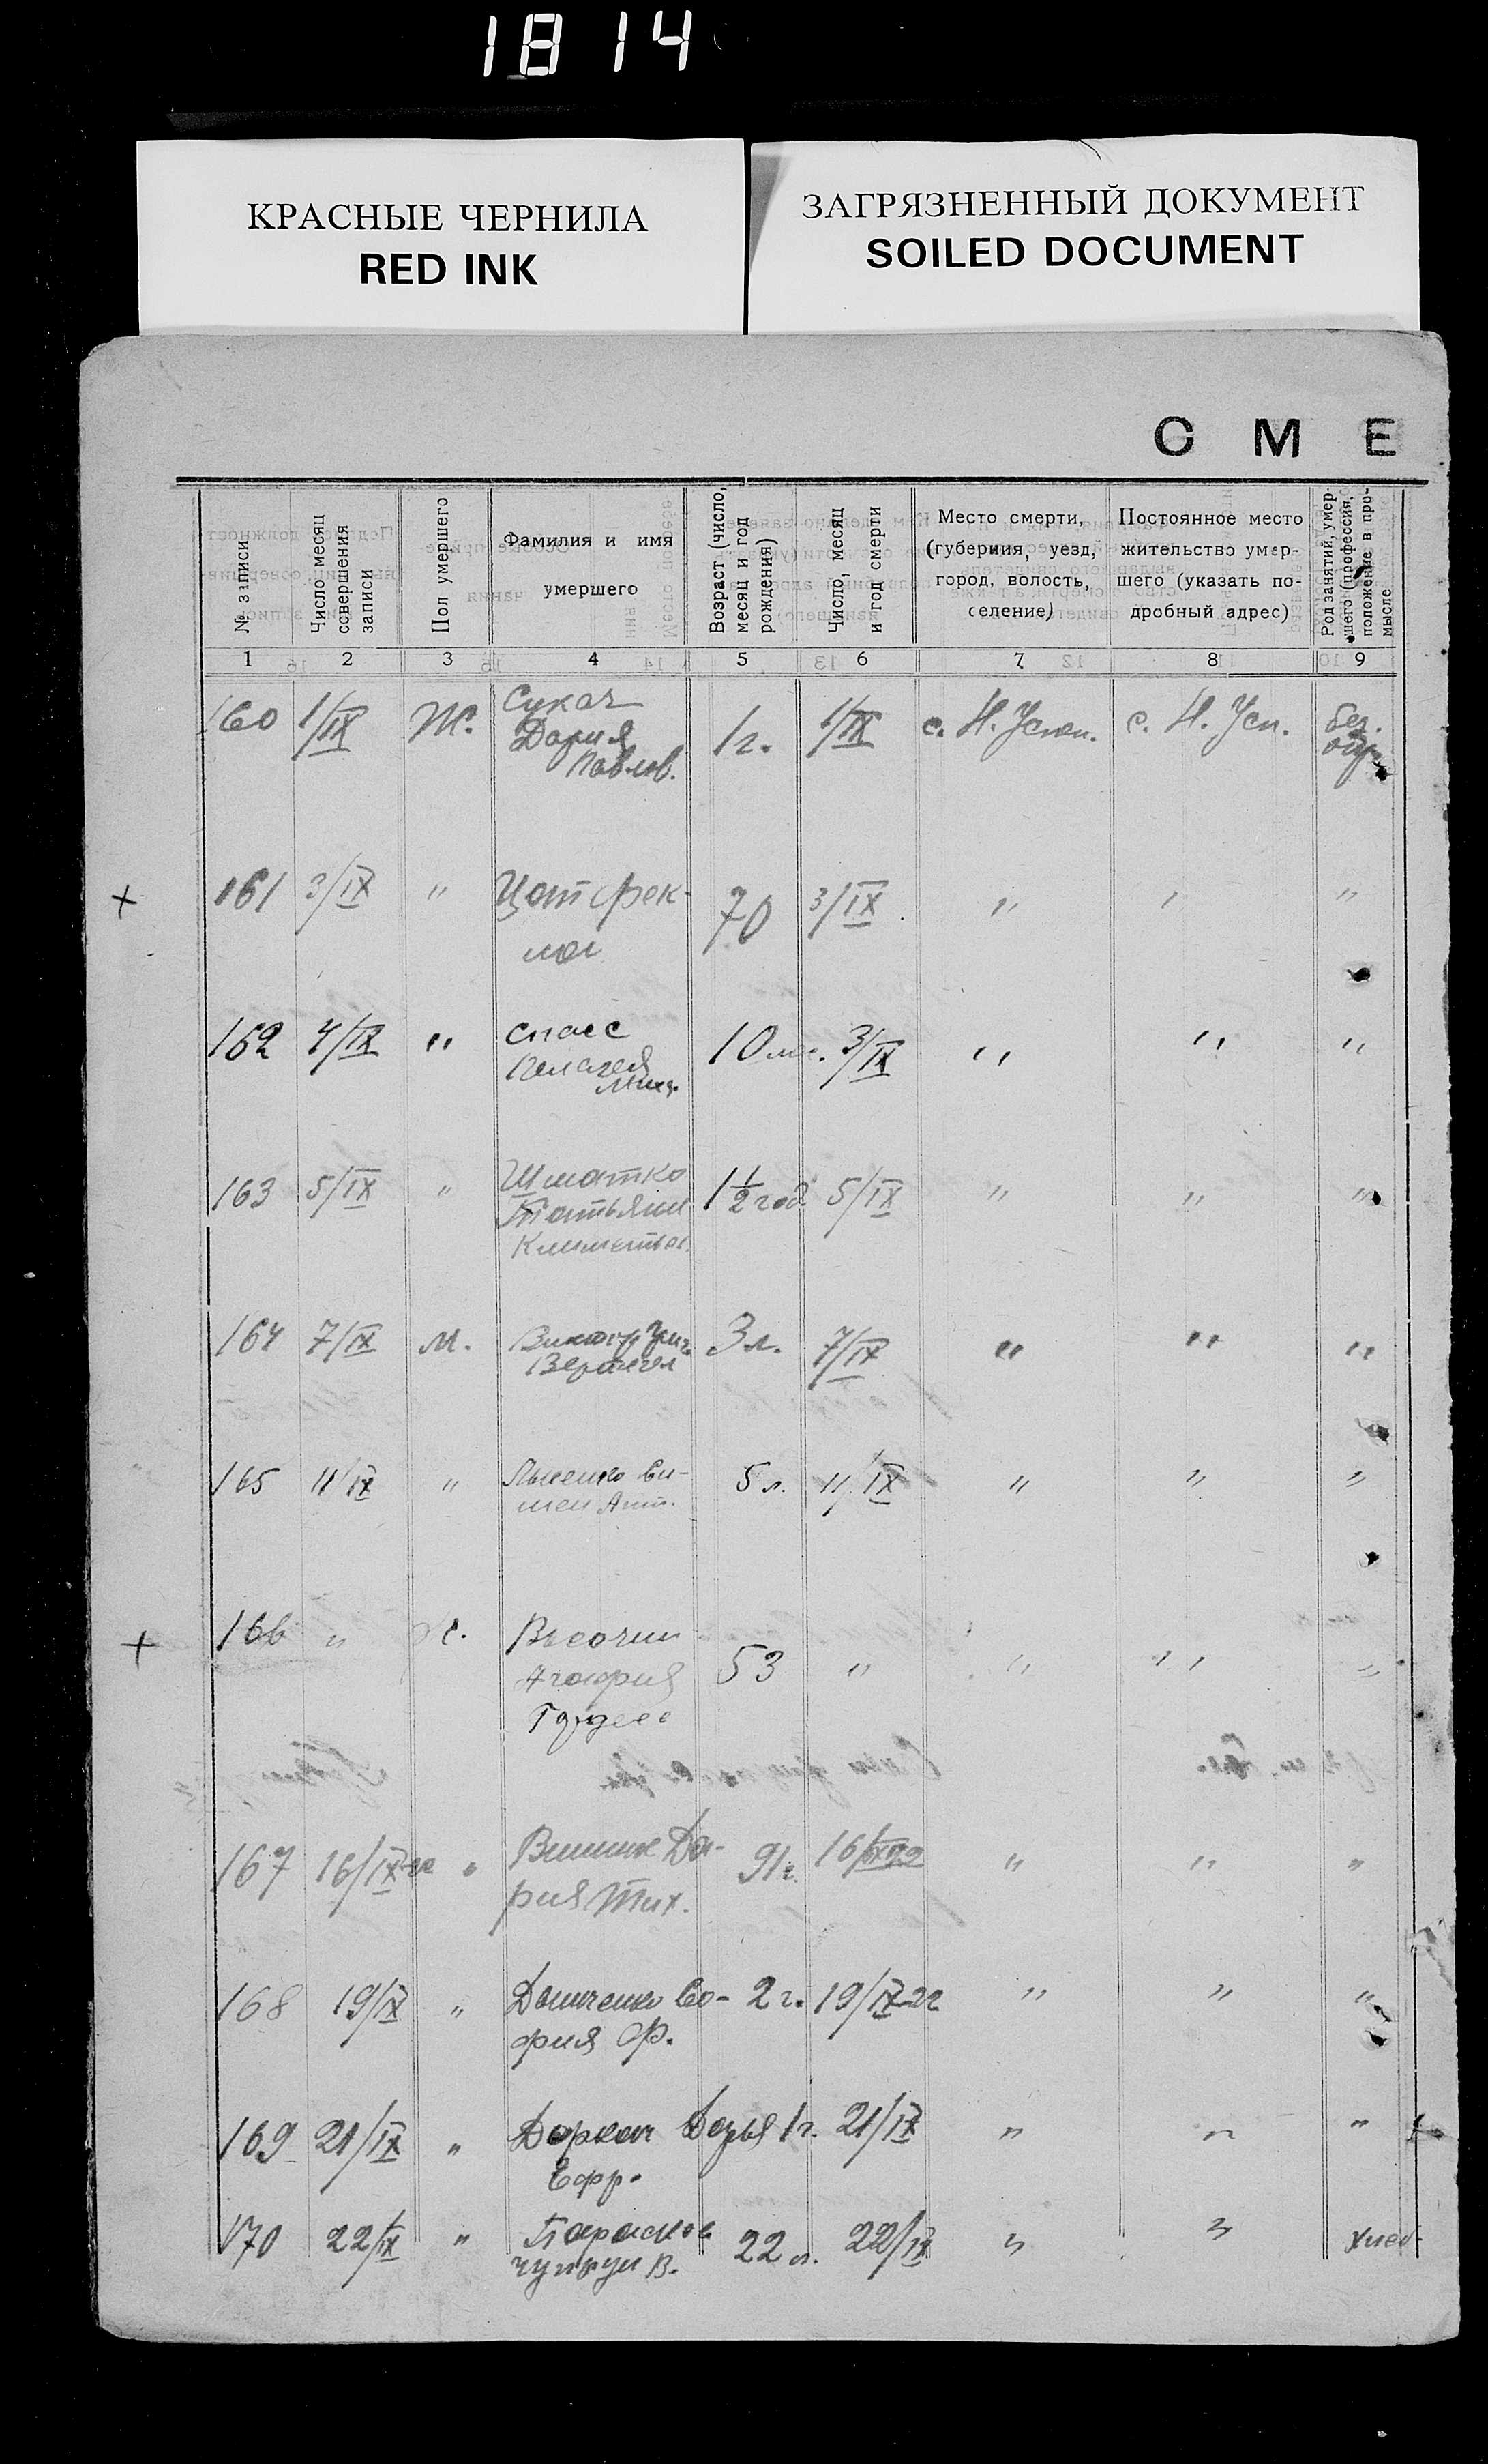 1814
КРАСНЫЕ ЧЕРНИЛА
RED INK
ЗАГРЯЗНЕННЫЙ ДОКУМЕНТ
SOILED DOCUMENT
СМЕ
№ записи
Число месяц
совершения
записи
Пол умершего
Фамилия и имя
умершего
Возраст (число,
месяц и год
рождения)
Число, месяц
и год смерти
Место смерти,
(губерния, уезд,
город, волость,
селение)
Постоянное место
жительство умер-
шего (указать по-
дробный адрес)
Род занятий, умер-
шего (профессия,
положение в про-
мысле
1 2 3 4 5 6 7 8 9
160 1/IX Ж. Сукач 1 г. 1/IX с. Н. Успен. с. Н. Усп. без.
Дария
Павлов.
161 3/IX " Фек- 70 3/IX " " "
162 4/IX " 10 3/IX " " "
Пелагея
163 5/IX " Шматко 1½ год 5/IX " " "
Татьяна
164 7/IX м. Виктор 3 л. 7/IX " " "
165 11/IX " 5 л. 11/IX " " "
166 " Ж. Височин 53 " " " "
Агафия
167 16/IX " Да- 91 г. 16/IX 22 " " "
рия Тих.
168 19/IX " Со- 2 г. 19/IX 22 " " "
фия Ф.
169 21/IX " Деркач Дарья 1 г. 21/IX " " "
Ефр.
170 22/IX " 22 л. 22/IX " "
В.